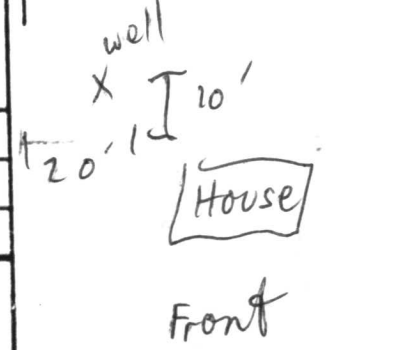 well
X
10'
20'
House
Front